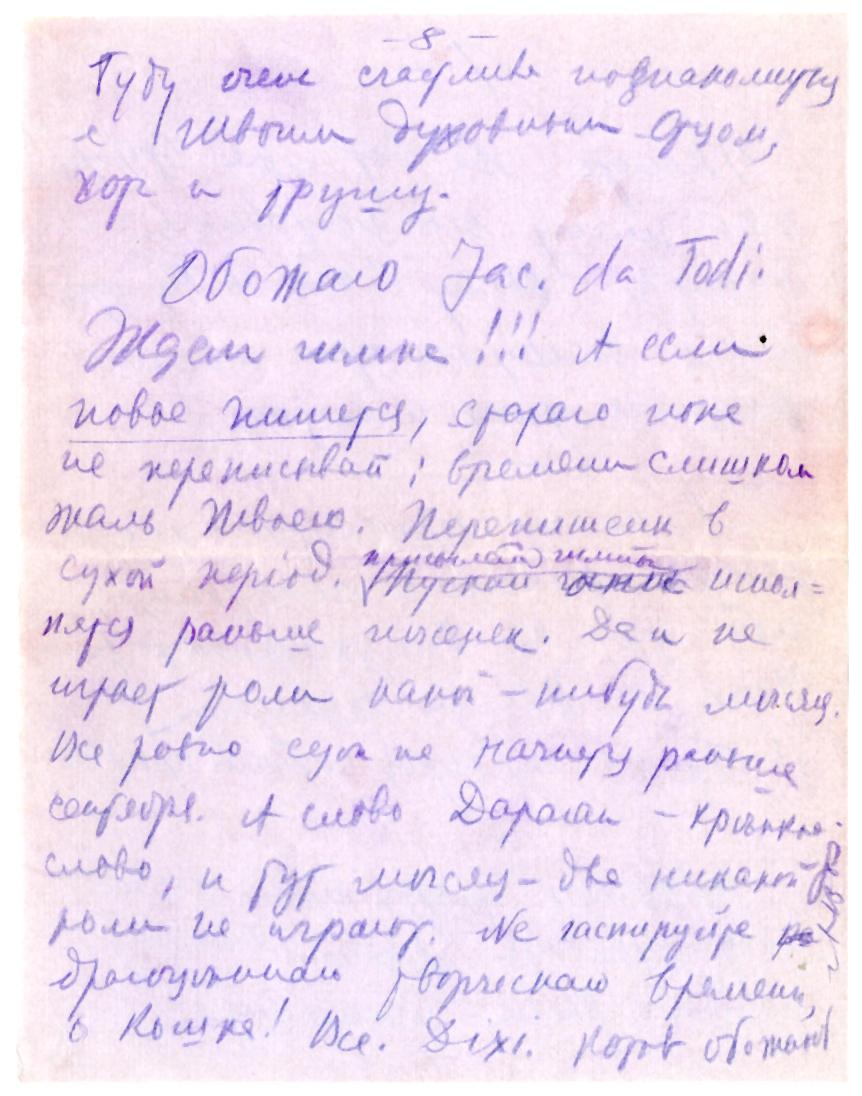 – 8 –
Буду очень счастлива познакомиться
с живым духовным отцом,
хор и группу.
Обожаю Jac. da Todi.
Ждем гимна!!! А если
новое пишется, старого пока
не переписывай; времени слишком
жаль Твоего. Перепишешь в
сухой период.
присылать гимны
раньше песенек. Да и не
играет роли какой-нибудь месяц.
Все равно сезон не начнется раньше
сентября. А слово Дараган – крепкое
слово, и тут месяц-два никакой
роли не играют. Не растрируйте
драгоценнаго творческаго времени,
о Кошка! Все. Dixi. Котов обожают